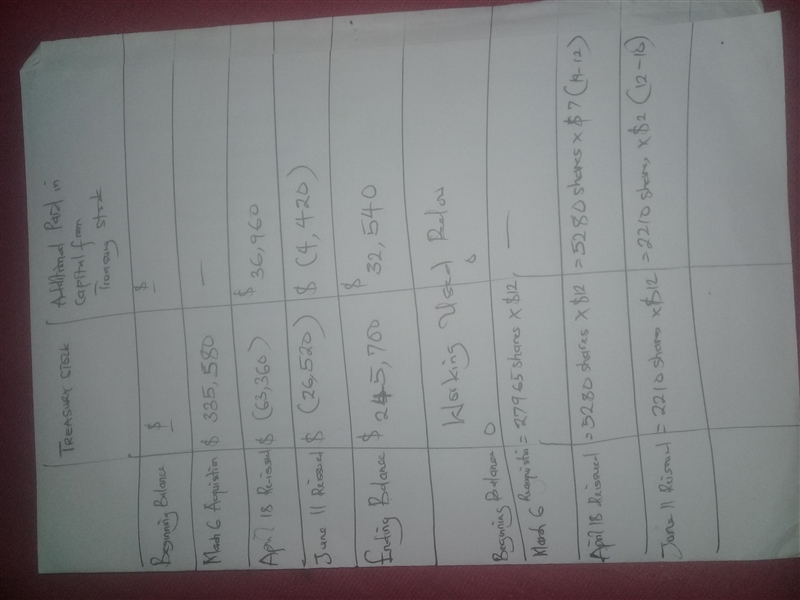 Treasury Stock Additional Paid in Capital from Treasury Stock
Beginning Balance $ — $ —
March 6 Acquisition $ 335,580 —
April 18 Reissued $ (63,360) $ 36,960
June 11 Reissued $ (26,520) $ (4,420)
Ending Balance $ 245,700 $ 32,540
Working Used Below
Beginning Balance 0
March 6 Reaquisition = 27965 shares x $12, —
April 18 Reissued = 5280 shares x $12 = 5280 shares x $7 (19-12)
June 11 Reissued = 2210 shares x $12 = 2210 shares x $2 (12-10)